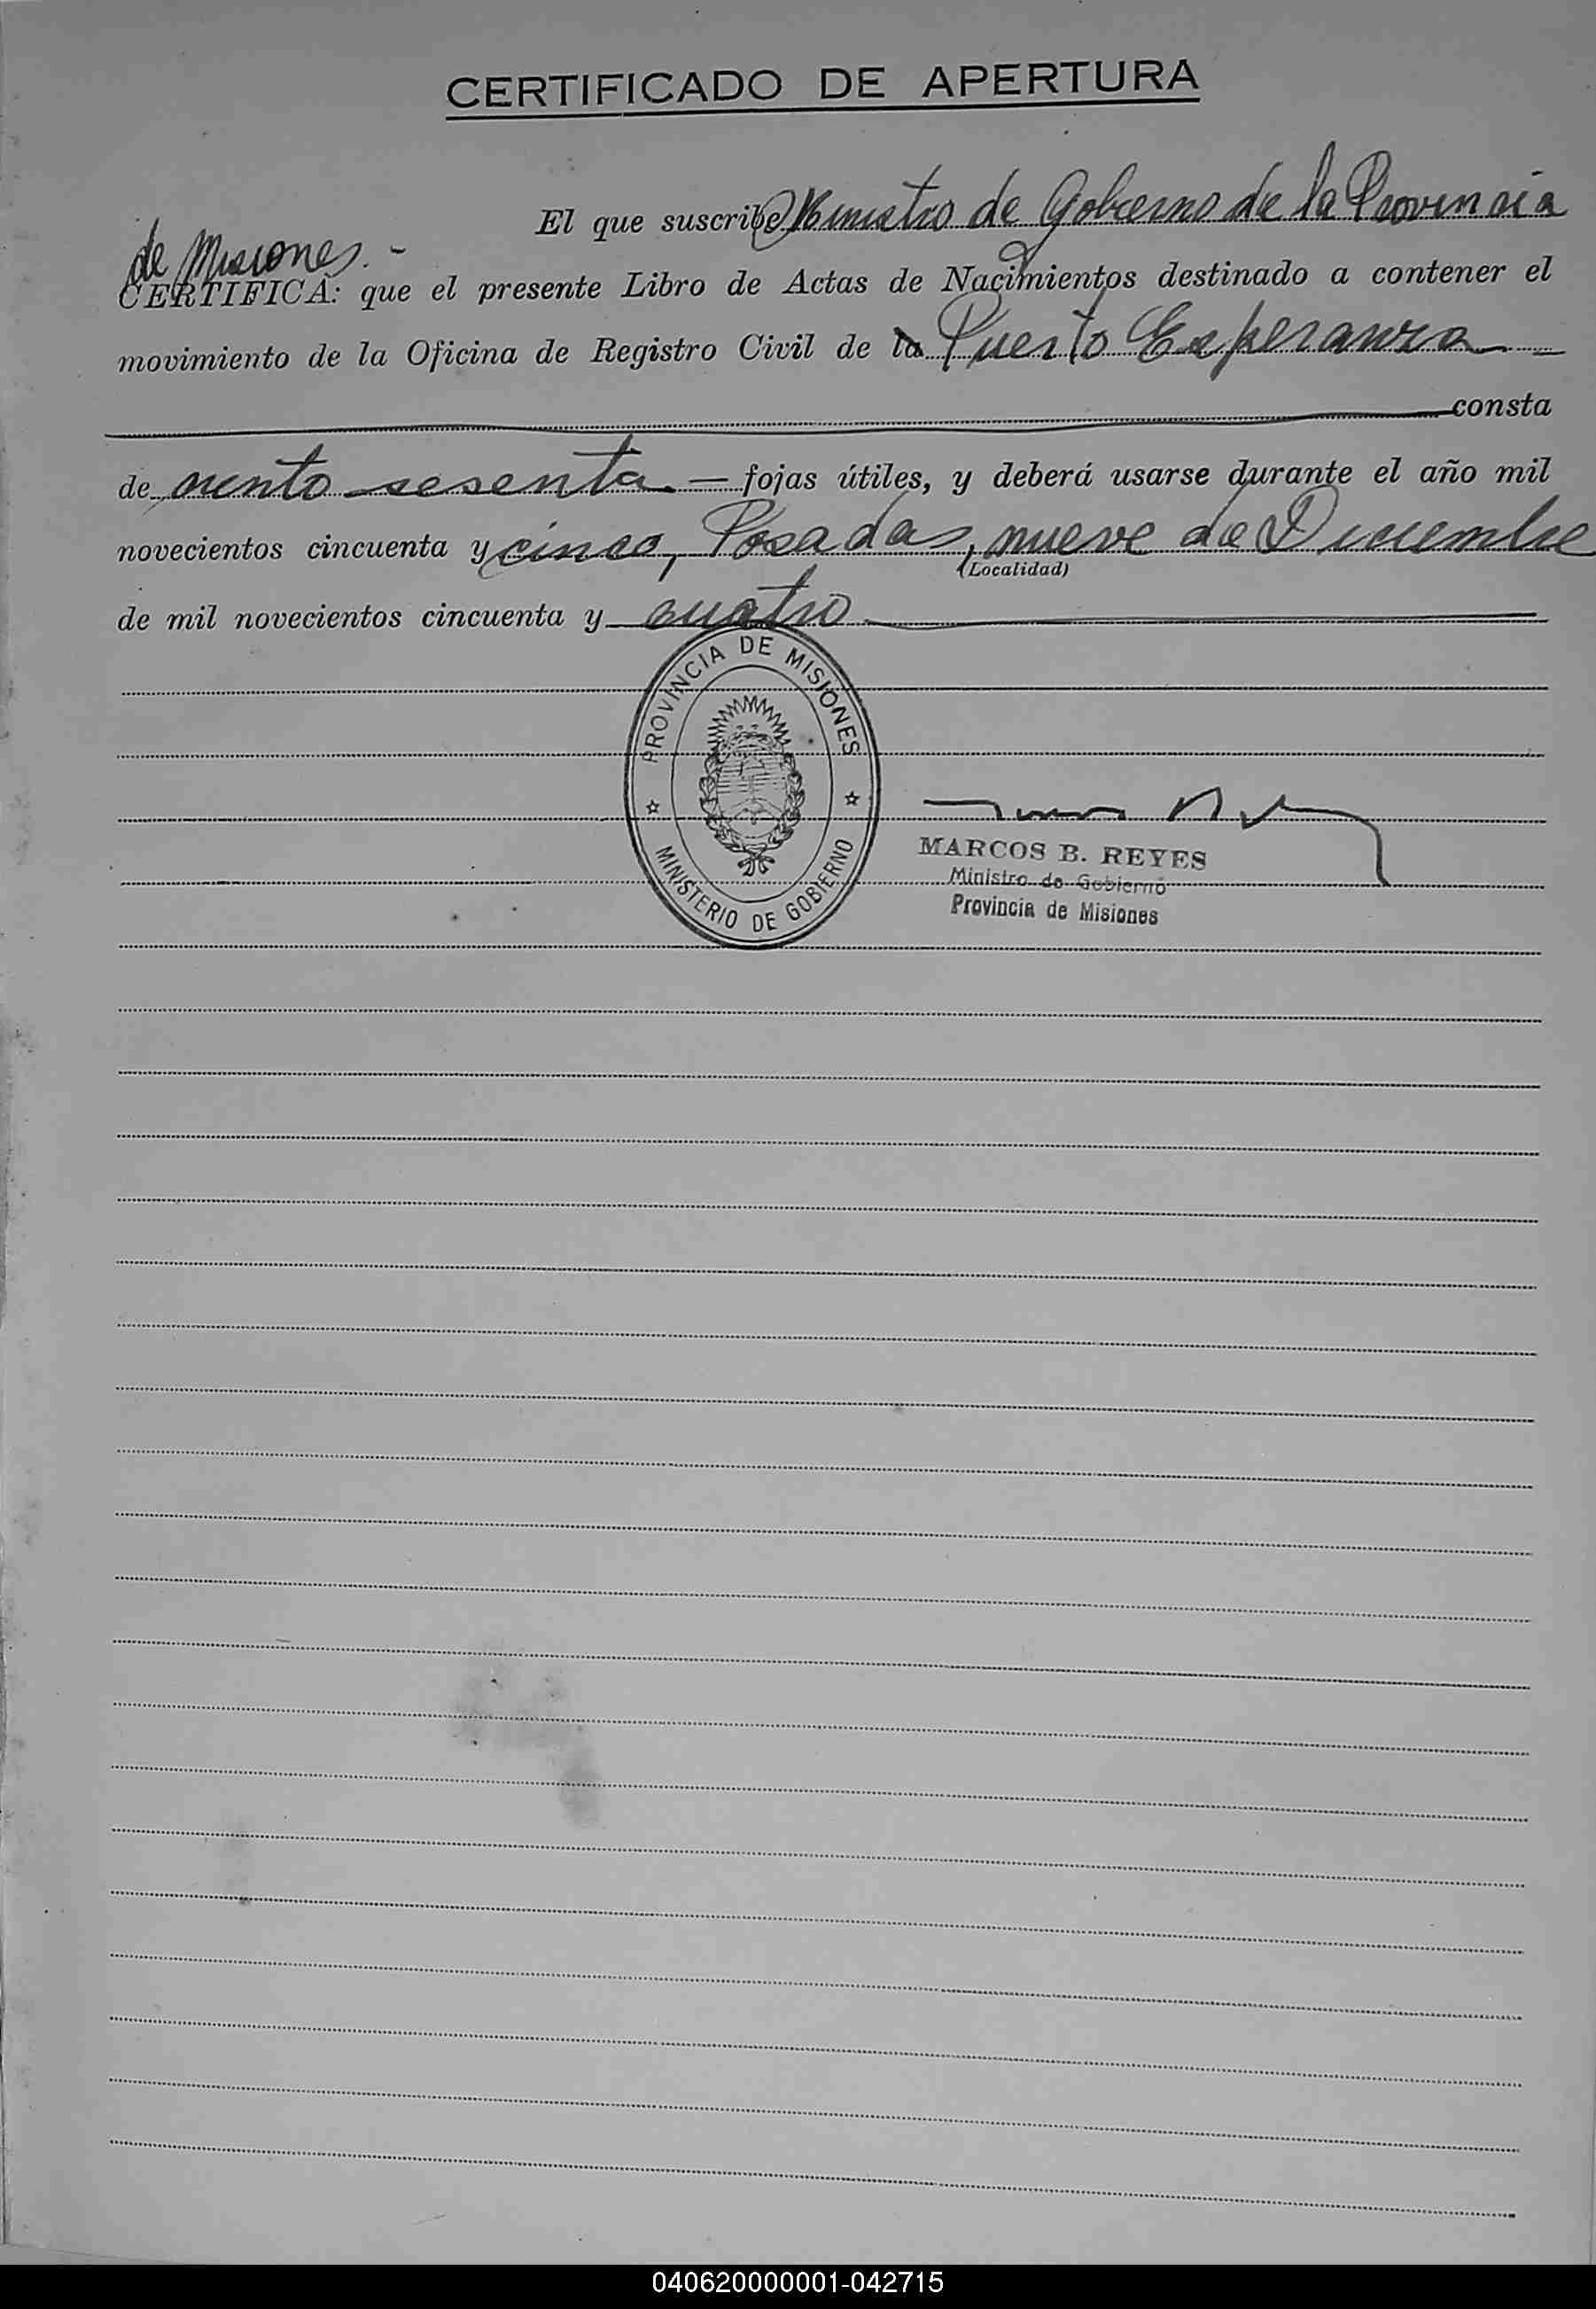 CERTIFICADO DE APERTURA
El que suscribe, Ministro de Gobierno de la Provincia
de Misiones. -
CERTIFICA: que el presente Libro de Actas de Nacimientos destinado a contener el
movimiento de la Oficina de Registro Civil de la Puerto Esperanza
consta
de ciento sesenta.— fojas útiles, y deberá usarse durante el año mil
novecientos cincuenta y cinco, Posadas, nueve de Diciembre
(Localidad)
de mil novecientos cincuenta y cuatro
PROVINCIA DE MISIONES
MINISTERIO DE GOBIERNO
MARCOS B. REYES
Ministro de Gobierno
Provincia de Misiones
040620000001-042715